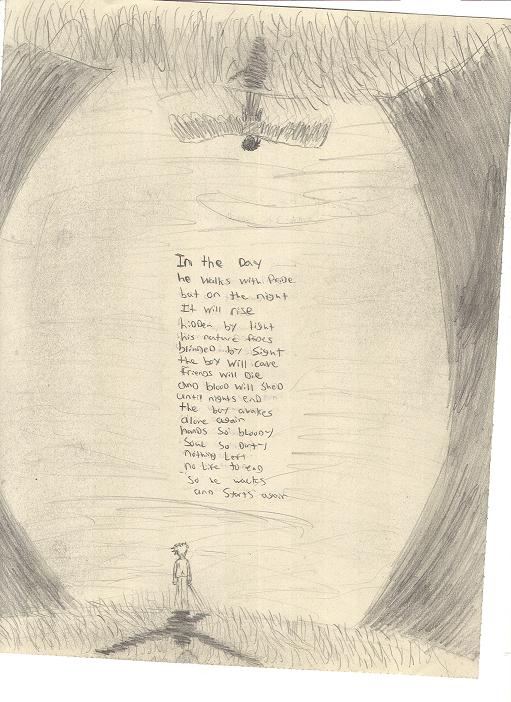 In the Day
he walks with Pride
but on the night
It will rise
hidden by light
his nature fades
blinded by Sight
the boy will cave
friends will Die
and blood will sheD
until nights enD
the boy awakes
alone again
hands so bloody
Soul So Dirty
nothing Left
no Life to end
So he walks
and Starts again